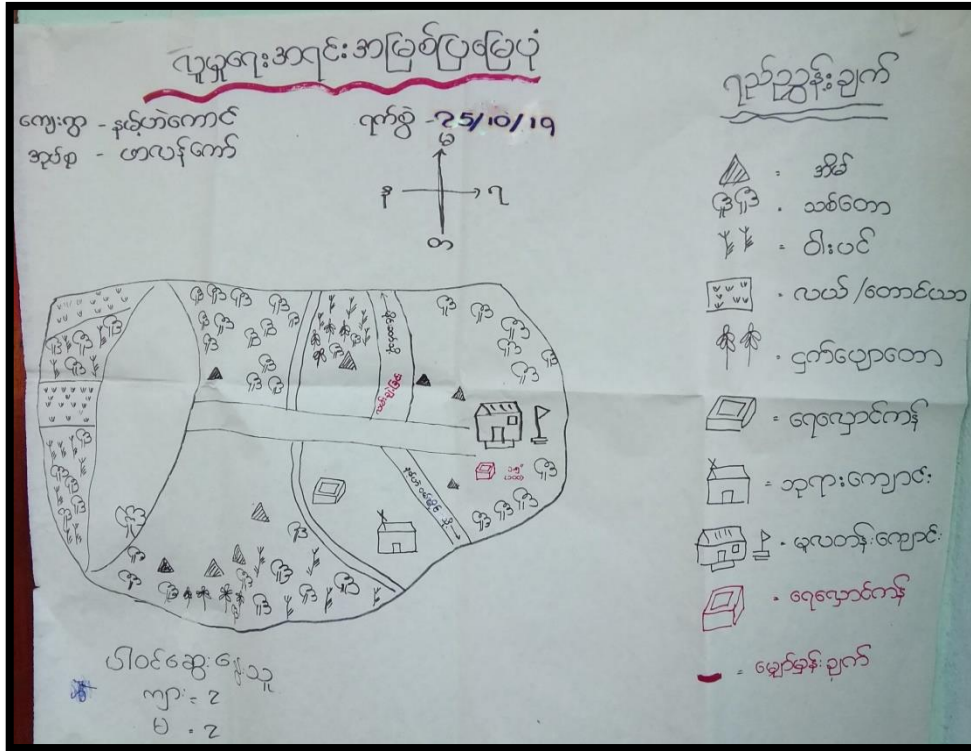 လူမှုရေးအရင်းအမြစ်ပြမြေပုံ
ကျေးရွာ - နမ့်ဟဲကောင်
အုပ်စု - ဟာလန်ကော်
ရက်စွဲ - 25/10/19
မ
န ရ
တ
ရည်ညွှန်းချက်
အိမ်
သစ်တော
ဝါးပင်
လယ်/တောင်ယာ
ငှက်ပျောတော
ရေလှောင်ကန်
ဘုရားကျောင်း
မူလတန်းကျောင်း
ရေလှောင်ကန်
မျှော်မှန်းချက်
ပါဝင်ဆွေးနွေးသူ
ကျား = 2
မ = 2